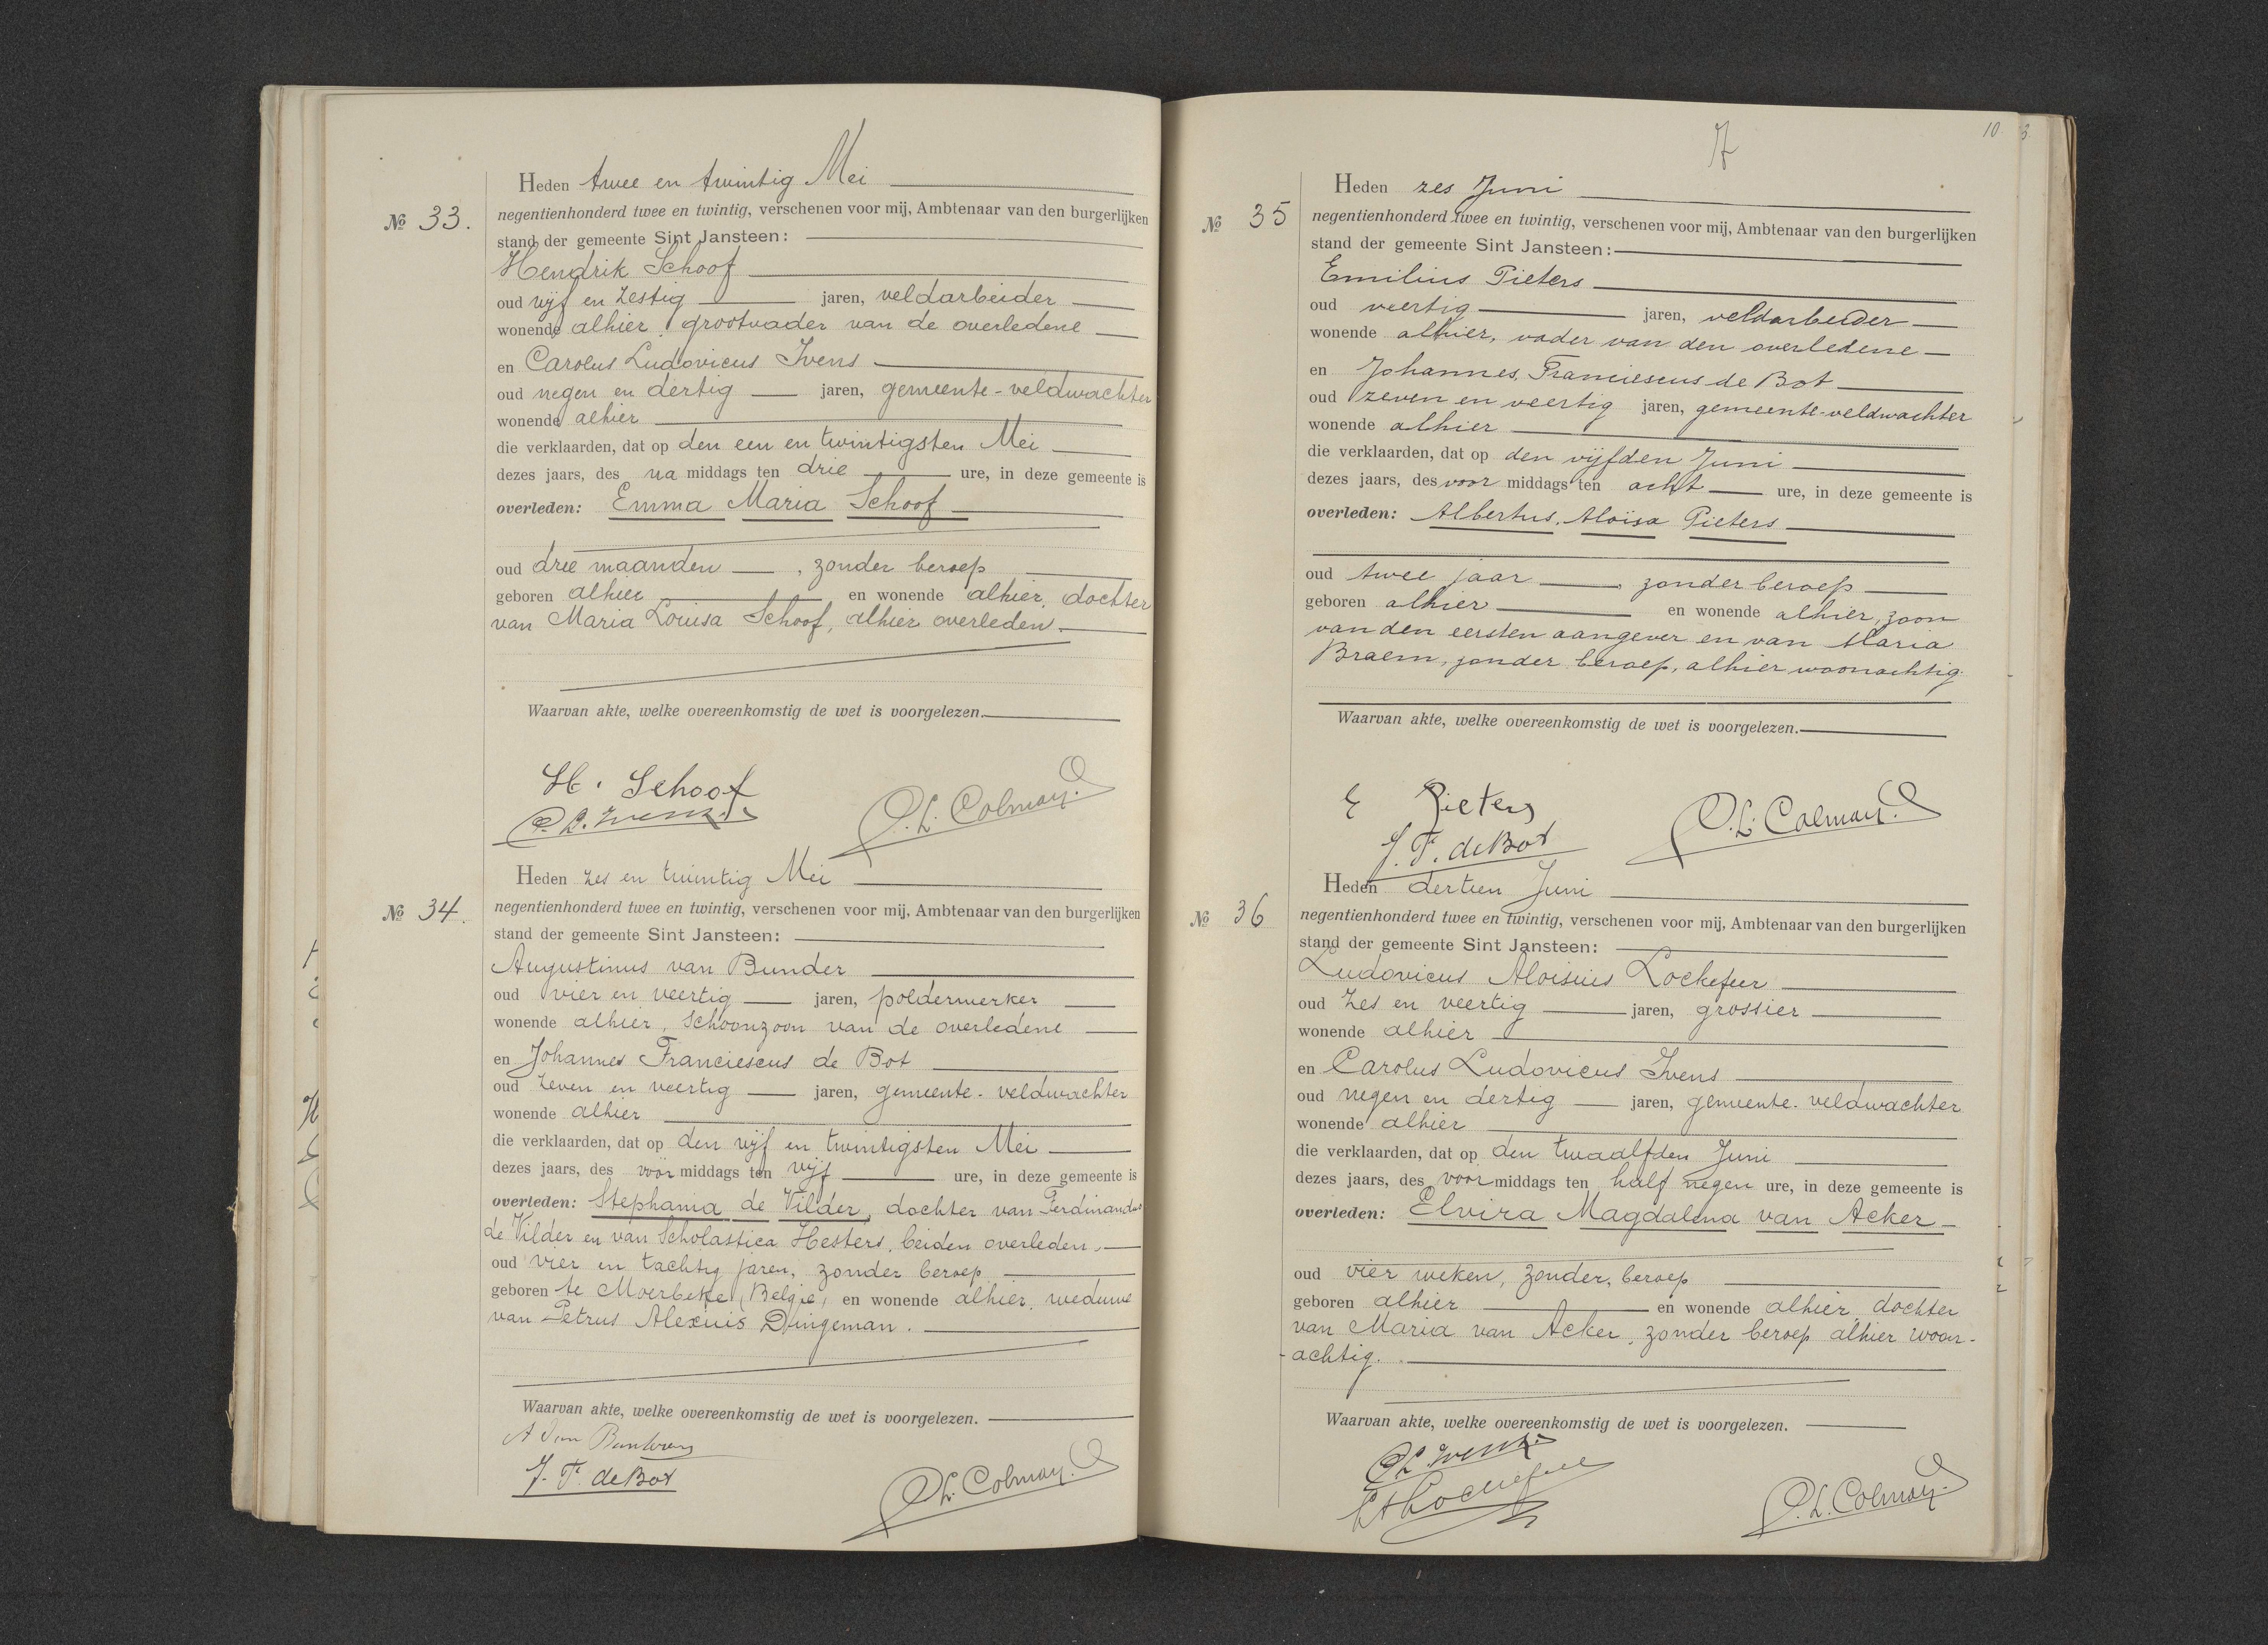 Heden twee en twintig Mei
No 33.
negentienhonderd twee en twintig, verschenen voor mij, Ambtenaar van den burgerlijken
stand der gemeente Sint Jansteen:
Hendrik Schoof
oud vijf en zestig jaren, veldarbeider
wonende alhier, grootvader van de overledene
en Carolus Ludovicus Ivens
oud negen en dertig jaren, gemeente-veldwachter
wonende alhier
die verklaarden, dat op den een en twintigsten Mei
dezes jaars, des na middags ten drie ure, in deze gemeente is
overleden: Emma Maria Schoof
oud drie maanden, zonder beroep
geboren alhier en wonende alhier, dochter
van Maria Louisa Schoof, alhier overleden.
Waarvan akte, welke overeenkomstig de wet is voorgelezen.
H. Schoof
C. L. Ivens P. L. Colman
Heden zes en twintig Mei
No 34.
negentienhonderd twee en twintig, verschenen voor mij, Ambtenaar van den burgerlijken
stand der gemeente Sint Jansteen:
Augustinus van Bunder
oud vier en veertig jaren, polderwerker
wonende alhier, schoonzoon van de overledene
en Johannes Franciescus de Bot
oud zeven en veertig jaren, gemeente-veldwachter
wonende alhier
die verklaarden, dat op den vijf en twintigsten Mei
dezes jaars, des voor middags ten vijf ure, in deze gemeente is
overleden: Stephania de Vilder, dochter van Ferdinandus
de Vilder en van Scholastica Hesters, beiden overleden,
oud vier en tachtig jaren, zonder beroep
geboren te Moerbeke (België) en wonende alhier, weduwe
van Petrus Alexius Dingeman.
Waarvan akte, welke overeenkomstig de wet is voorgelezen.
A Van
J. F. de Bot P. L. Colman
7
10
Heden zes Juni
No 35
negentienhonderd twee en twintig, verschenen voor mij, Ambtenaar van den burgerlijken
stand der gemeente Sint Jansteen:
Emilius Pieters
oud veertig jaren, veldarbeider
wonende alhier, vader van den overledene
en Johannes Franciescus de Bot
oud zeven en veertig jaren, gemeente-veldwachter
wonende alhier
die verklaarden, dat op den vijfden Juni
dezes jaars, des voor middags ten acht ure, in deze gemeente is
overleden: Albertus, Aloïsa Pieters
oud twee jaar, zonder beroep
geboren alhier en wonende alhier, zoon
van den eersten aangever en van Maria
Braem, zonder beroep, alhier woonachtig.
Waarvan akte, welke overeenkomstig de wet is voorgelezen.
E Pieters
J. F. de Bot P. L. Colman
Heden dertien Juni
No 36
negentienhonderd twee en twintig, verschenen voor mij, Ambtenaar van den burgerlijken
stand der gemeente Sint Jansteen:
Ludovicus Aloisius Lockefeer
oud zes en veertig jaren, grossier
wonende alhier
en Carolus Ludovicus Ivens
oud negen en dertig jaren, gemeente-veldwachter
wonende alhier
die verklaarden, dat op den twaalfden Juni
dezes jaars, des voor middags ten half negen ure, in deze gemeente is
overleden: Elvira Magdalena van Acker
oud vier weken, zonder, beroep
geboren alhier en wonende alhier, dochter
van Maria van Acker, zonder beroep alhier woon-
-achtig.
Waarvan akte, welke overeenkomstig de wet is voorgelezen.
C L Ivens
L A Lockefeer P. L. Colman